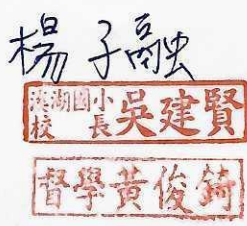 楊子融
溪湖國小
校長吳建賢
督學黃俊錡